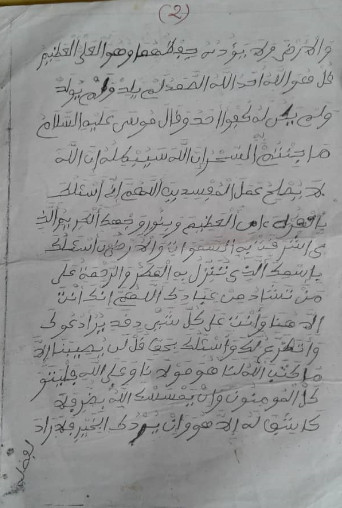 (2)
والارض ولا يؤده حفظهما وهو العلى العظيم
قل هو الله احد الله الصمد لم يلد ولم يولد
ولم يكن له كفوا احد وقال موسى عليه السلام
ما جئتم به السحر ان الله سيبطله ان الله
لا يصلح عمل المفسدين اللهم انى اسئلك
العظيم وبنور وجهك الكريم الذ
ى اشرقت به السموات والارض واسئلك
باسمك الذى تنزل به الفكر والرحمة على
من تشاء من عبادك اللهم انك انت
الاهنا وانت على كل شىء قدير
واسئلك بحق قل لن يصيبنا الا
ما كتب الله لنا هو مولانا وعلى الله فليتو
كل المومنون وان يمسسك الله بضر فلا
كاشف له الا هو وان يردك بخير فلا راد
لفضله